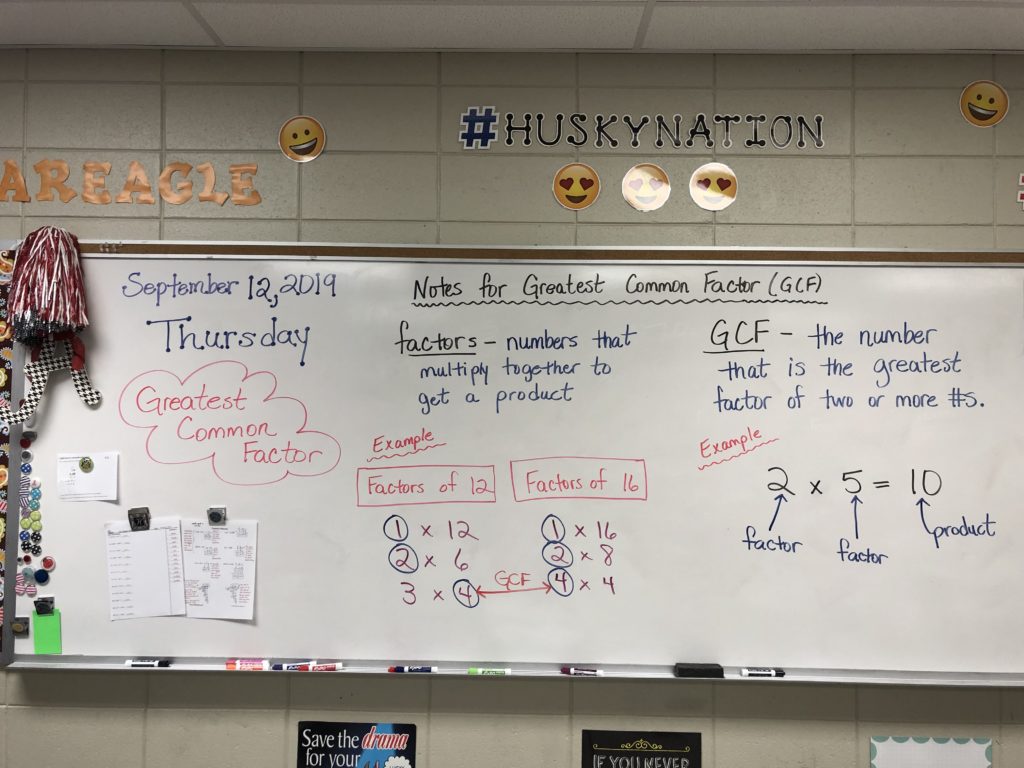 #HUSKYNATION
AREAGLE
September 12, 2019
Thursday
Greatest
Common
Factor
Notes for Greatest Common Factor (GCF)
factors - numbers that
multiply together to
get a product
Example
Factors of 12
1 x 12
2 x 6
3 x 4
GCF
Factors of 16
1 x 16
2 x 8
4 x 4
GCF - the number
that is the greatest
factor of two or more #s.
Example
2 x 5 = 10
factor
factor
product
Save the drama
for your
IF YOU NEVER